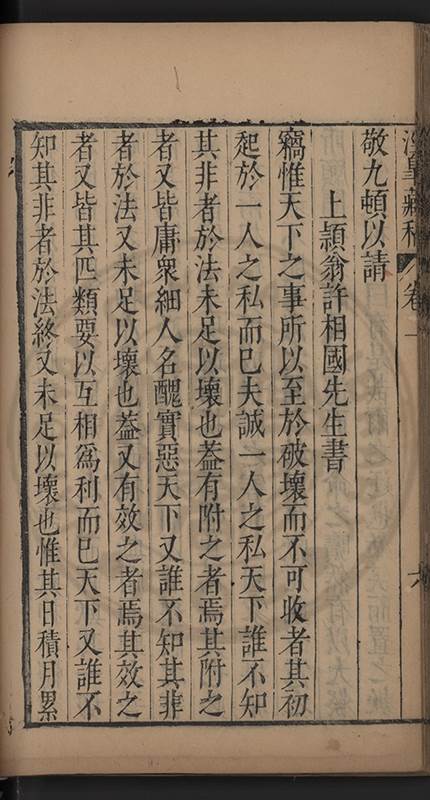 藏稿 卷一
敬九頓以請
上潁翁許相國先生書
竊惟天下之事所以至於破壞而不可收者其初
起於一人之私而已夫誠一人之私天下誰不知
其非者於法未足以壞也葢有附之者焉其附之
者又皆庸衆細人名醜實惡天下又誰不知其非
者於法又未足以壞也葢又有效之者焉其效之
者又皆其匹類要以互相爲利而已天下又誰不
知其非者於法終又未足以壞也惟其日積月累